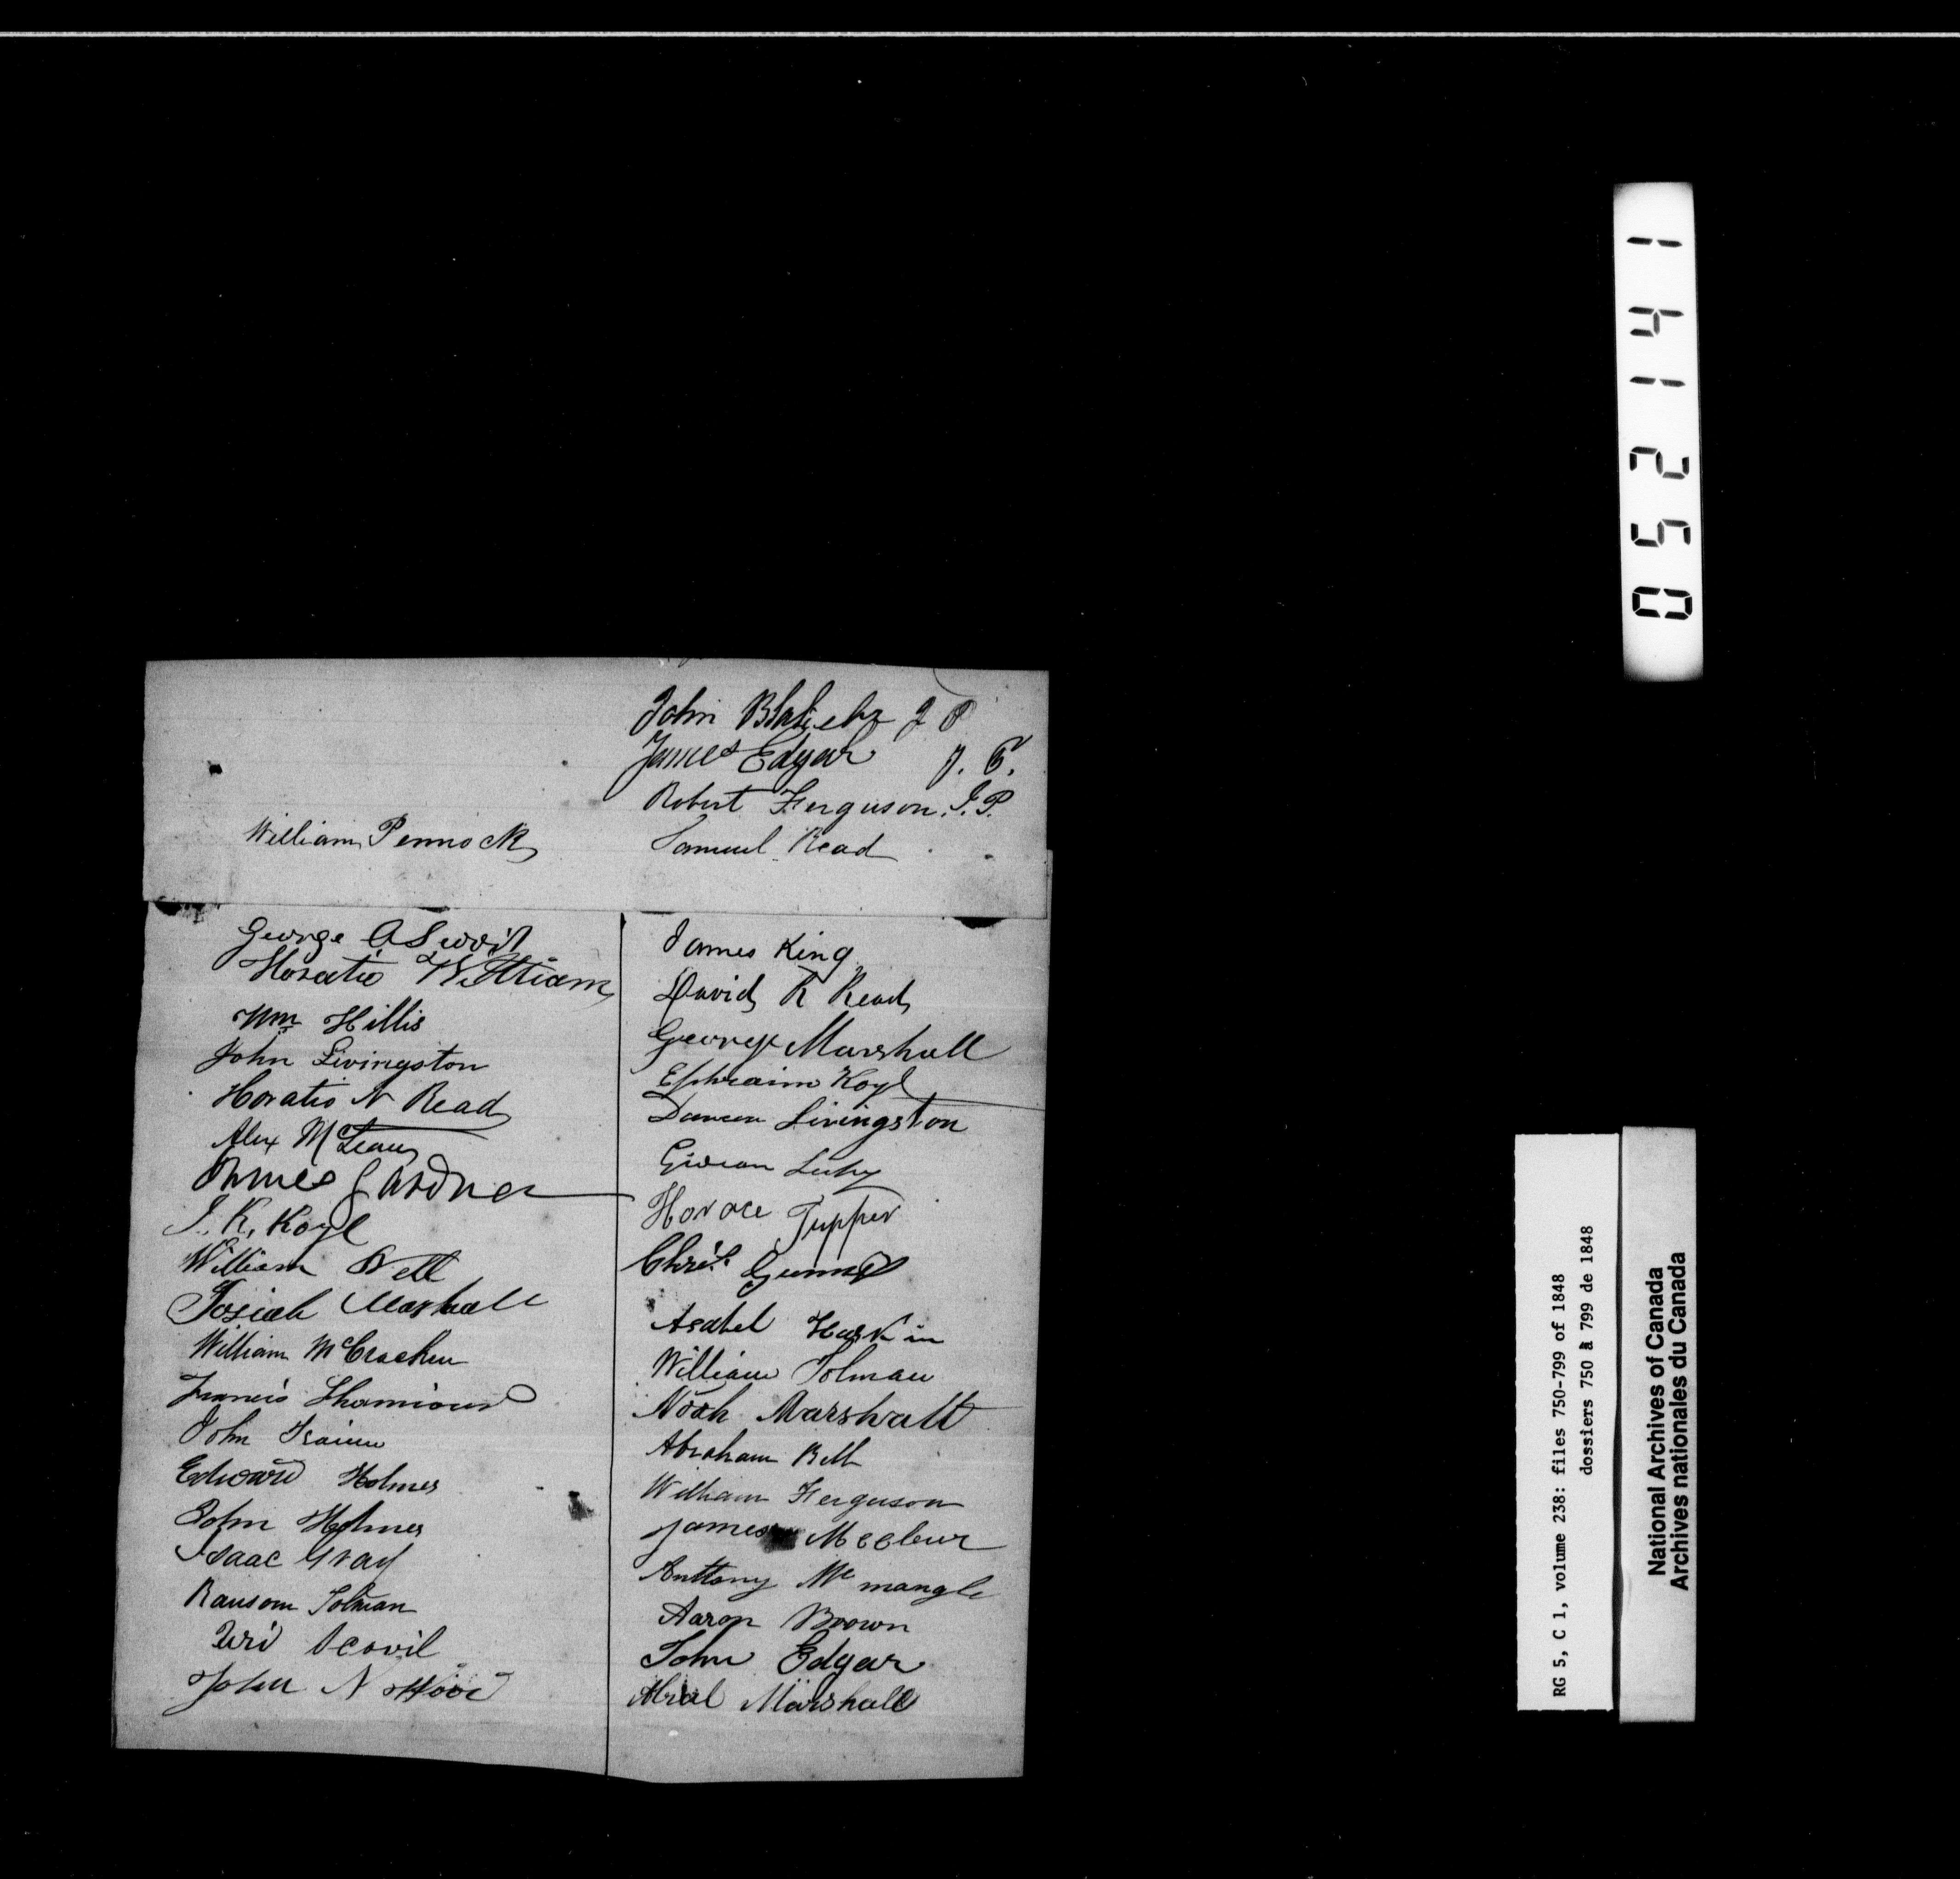 John J P
James Edgar J. P.
Robert Ferguson. J. P.
William Pennock
Samuel Read
George A
Horatio William
Wm Hillis
John Livingston
Horatio N Read
Alex McLean
James Gardner
J. K. Koyl
William Bell
Josiah Marshall
William McCracken
Francis
John
Edward Holmes
John Holmes
Isaac Gray
Ransom Tolman
Uri Scovil
John N Wood
James King
David R Read
George Marshall
Ephraim Koyl
Duncan Livingston
Gideon
Horace Tupper
Chris.
Asahel Haskin
William Tolman
Noah Marshall
Abraham Bell
William Ferguson
James
Anttony Mc mangle
Aaron Brown
John Edgar
Marshall
052141
RG 5, C 1, volume 238: files 750-799 of 1848
dossiers 750 à 799 de 1848
National Archives of Canada
Archives nationales du Canada